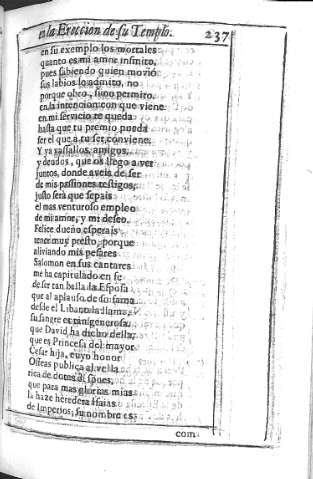 en la Ereccion de su Templo. 237
en su exemplo los mortales
quanto es mi amor infinito,
pues sabiendo quien movió
sus labios lo admito, no
porque obro, sino permito.
en la intencion con que viene
en mi servicio te queda
hasta que tu premio pueda
ser el que a tu ser conviene.
Y ya vassallos, amigos,
y deudos, que os llego a ver
juntos, donde aveis de ser
de mis passiones testigos,
justo será que sepais
el mas venturoso empleo
de mi amor, y mi deseo.
Felice dueño esperais
tener muy presto, porque
aliviando mis pesares
Salomon en sus cantares
me ha capitulado en fe
de ser tan bella la Esposa
que al aplauso de su fama
desde el Libano la llama,
su sangre es tan generosa,
que David ha dicho della,
que es Princesa del mayor
Cesar hija, cuyo honor
Oseas publica al vella
rica de dotes
que para mas glorias mias
la haze heredera Isaias
de Imperios; su nombre es
com-